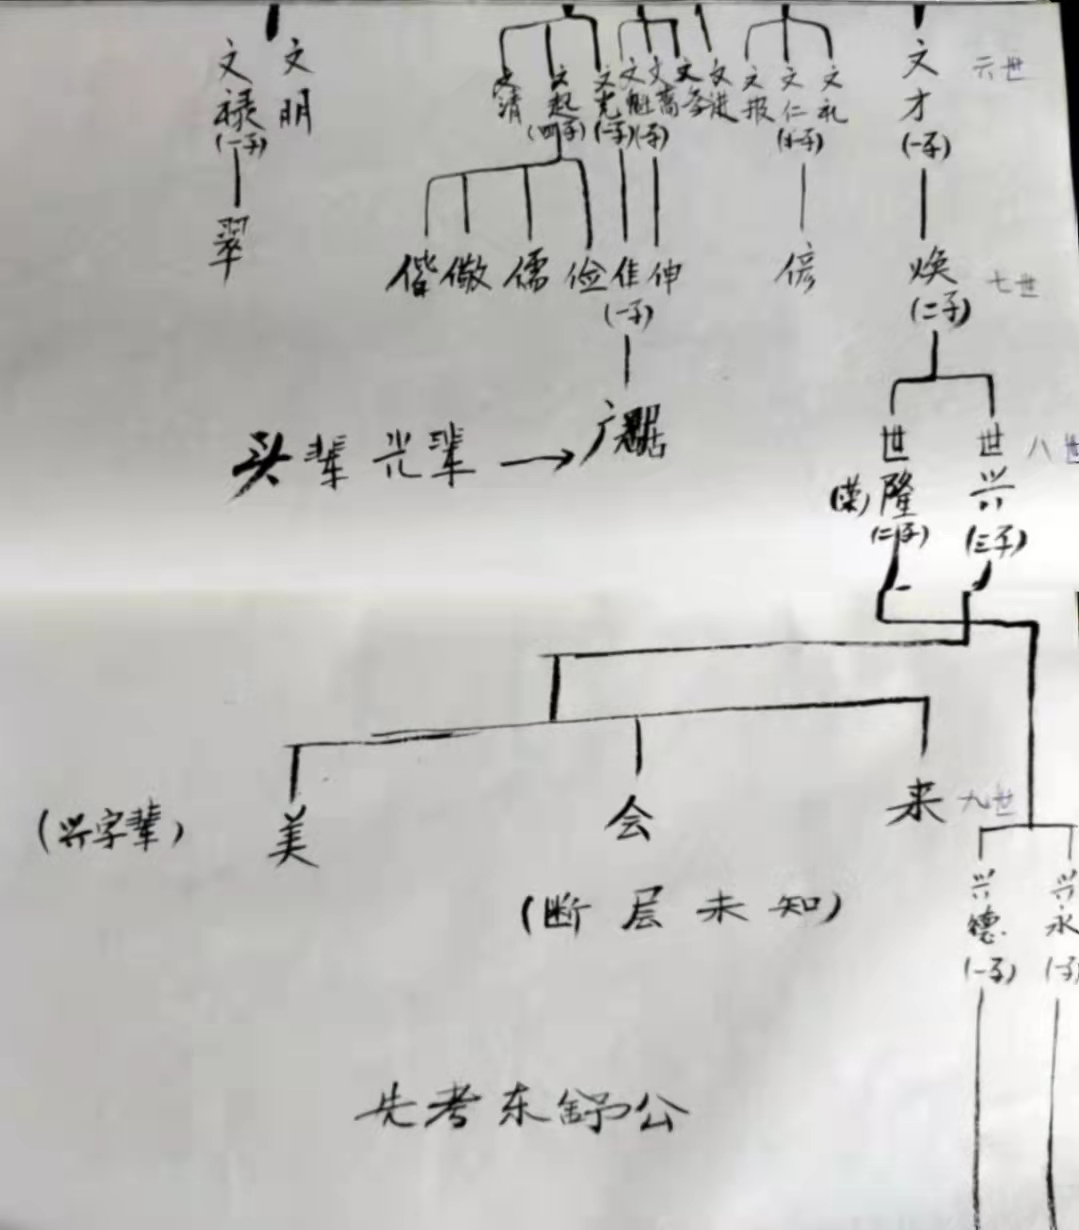 文禄
(一子)
文明
文清
文起
(四子)
文光
(一子)
文魁
(一子)
文高
文进
文报
文仁
文礼
文才
(一子)
六世
翠
偕
儆
儒
俭
隹
(一子)
伸
偐
焕
(二子)
七世
头辈 光辈 →
世隆
(荣)
(二子)
世兴
(三子)
八世
(兴字辈)
美
会
来
九世
(断层未知)
兴德
(一子)
兴永
(一子)
先考东舒公